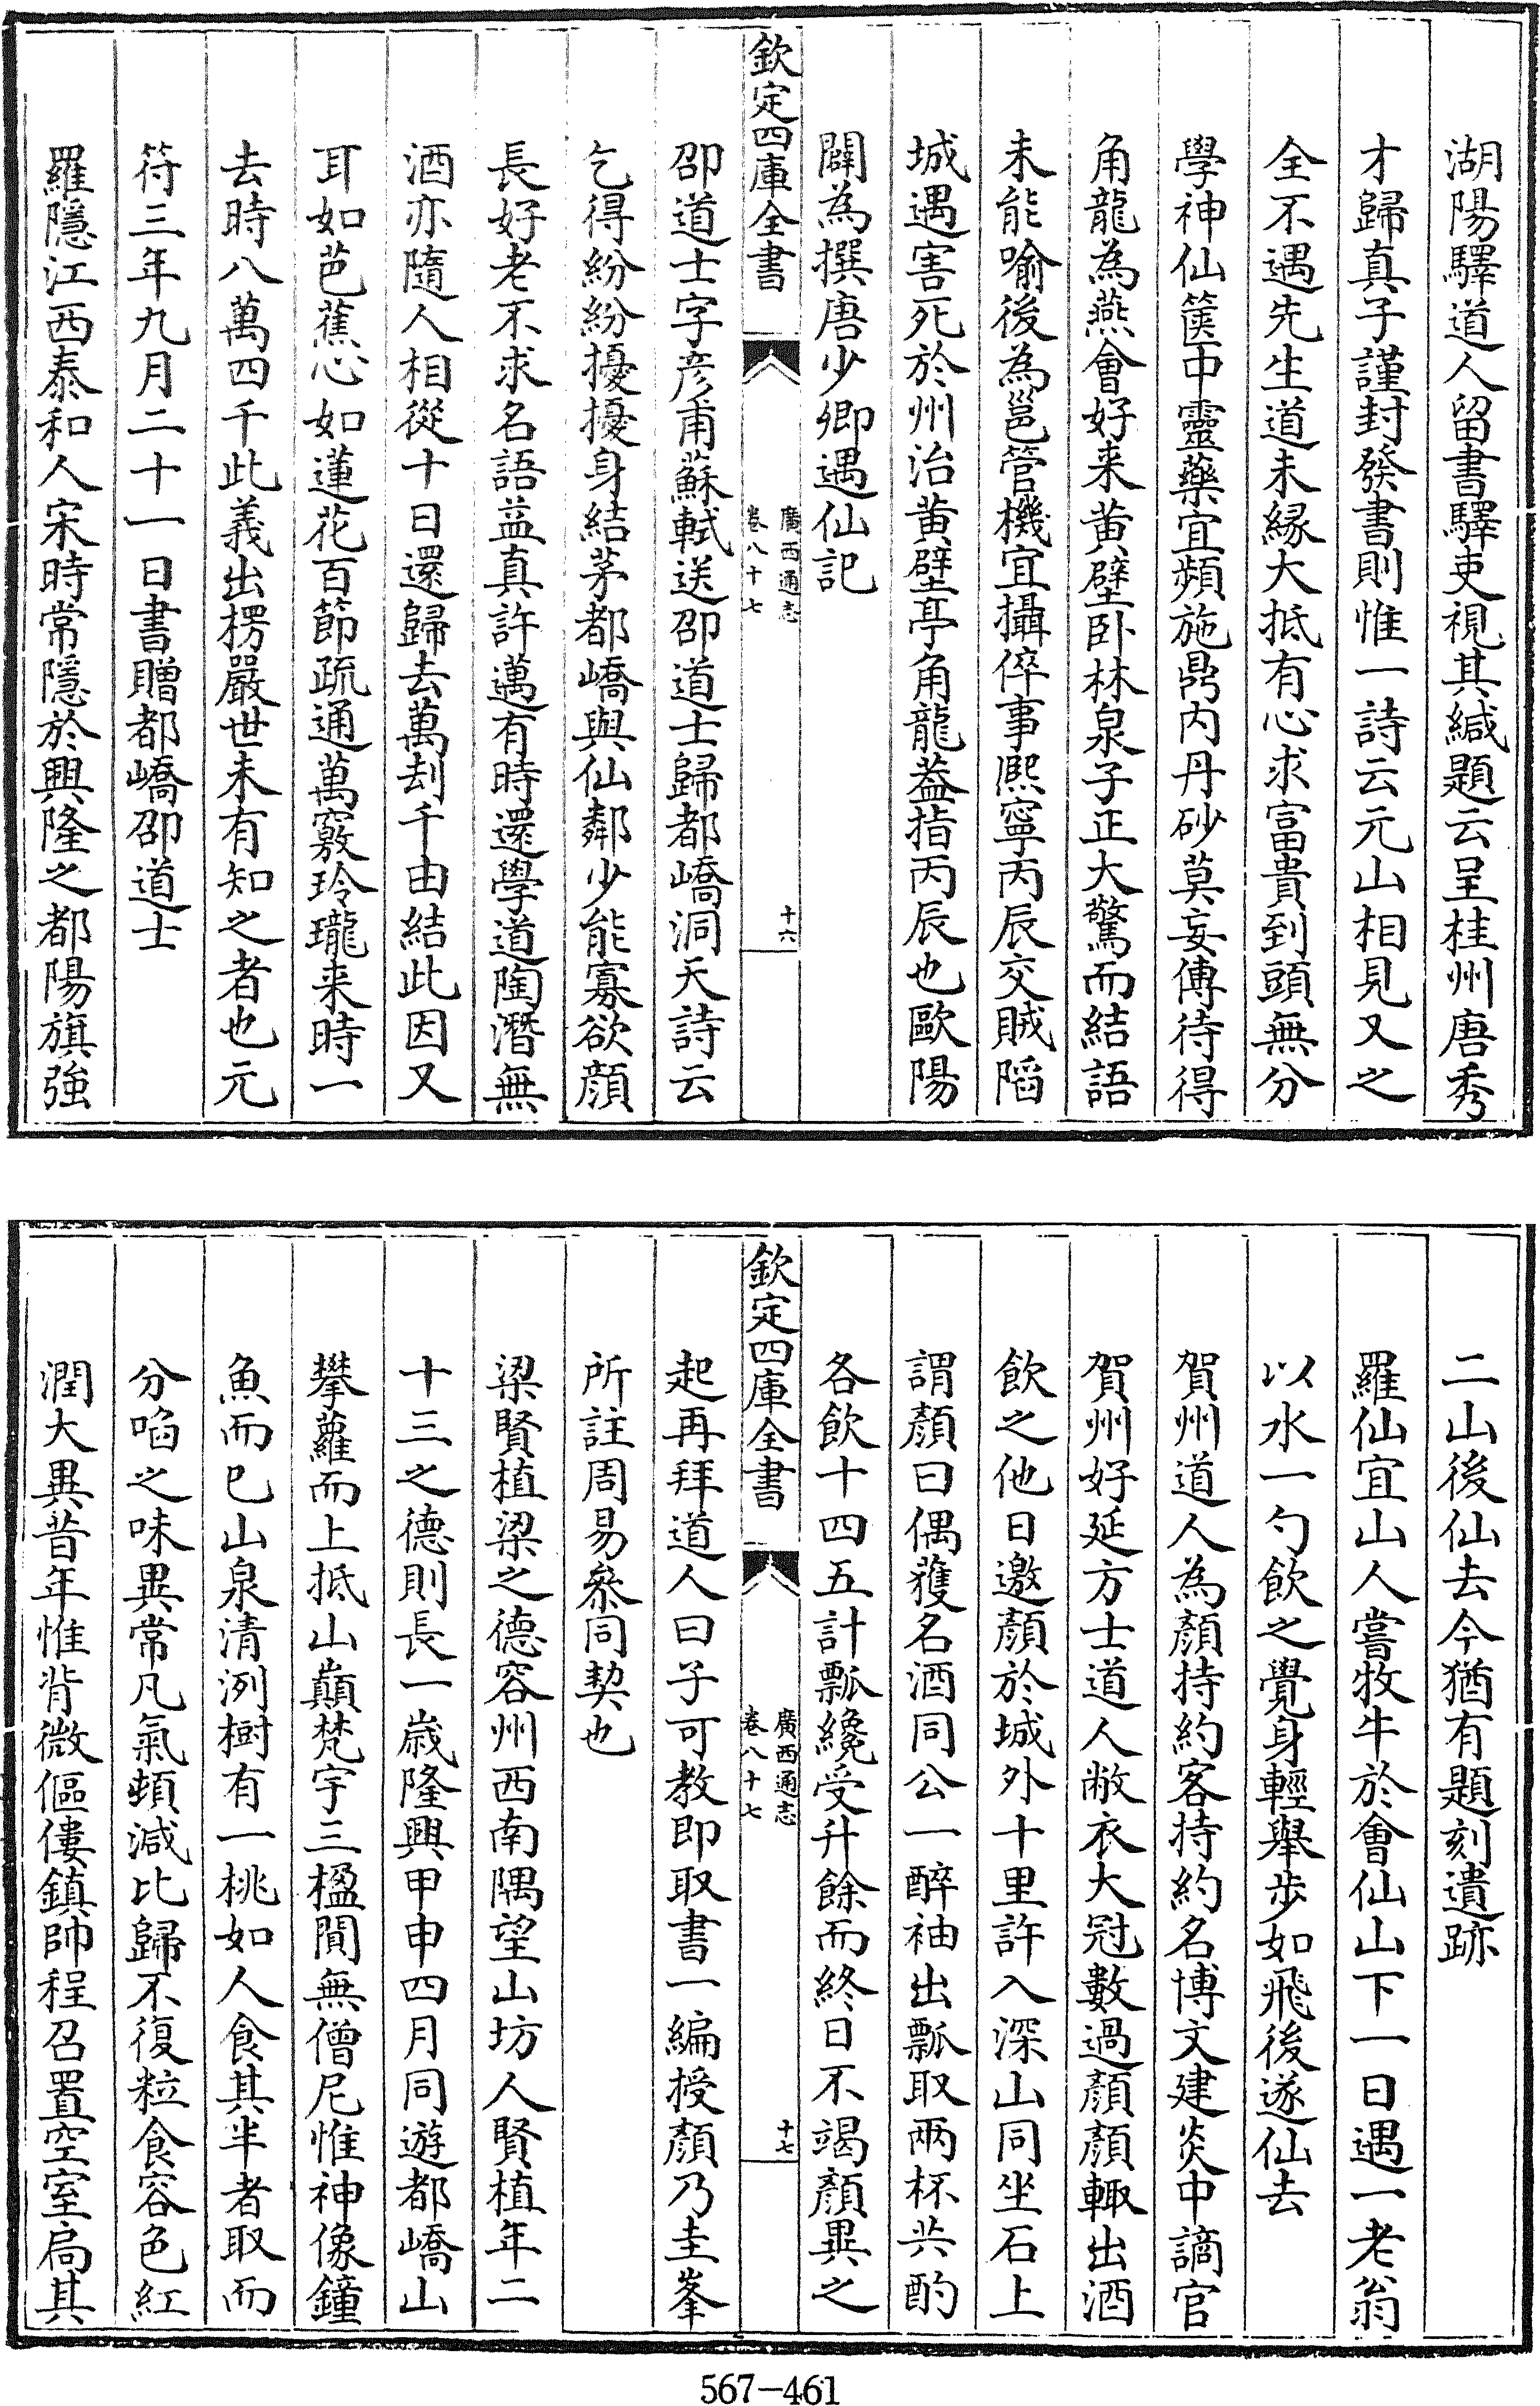 湖陽驛道人留書驛吏視其緘題云呈桂州唐秀
才歸真子謹封發書則惟一詩云元山相見又之
全不遇先生道未縁大抵有心求富貴到頭無分
學神仙篋中靈藥宜頻施鼎内丹砂莫妄傳待得
角龍為燕會好来黄壁卧林泉子正大驚而結語
未能喻後為邕管機宜攝倅事熈寧丙辰交賊䧟
城遇害死於州治黄壁亭角龍葢指丙辰也歐陽
闢為撰唐少卿遇仙記
欽定四庫全書
廣西通志
卷八十七
十六
邵道士字彦甫蘇軾送邵道士歸都嶠洞天詩云
乞得紛紛擾擾身結茅都嶠與仙鄰少能寡欲顔
長好老不求名語益真許邁有時還學道陶潛無
酒亦隨人相從十日還歸去萬刦千由結此因又
耳如芭蕉心如蓮花百節疏通萬竅玲瓏来時一
去時八萬四千此義出楞嚴世未有知之者也元
符三年九月二十一日書贈都嶠邵道士
羅隱江西泰和人宋時常隱於興隆之都陽旗強
二山後仙去今猶有題刻遺跡
羅仙宜山人嘗牧牛於會仙山下一日遇一老翁
以水一勺飲之覺身輕舉步如飛後遂仙去
賀州道人為顔持約客持約名博文建炎中謫官
賀州好延方士道人敝衣大冠數過顔顔輙出酒
飲之他日邀顔於城外十里許入深山同坐石上
謂顔曰偶獲名酒同公一醉袖出瓢取兩杯共酌
各飲十四五計瓢纔受升餘而終日不竭顔異之
欽定四庫全書
廣西通志
卷八十七
十七
起再拜道人曰子可教即取書一編授顔乃圭峯
所註周易叅同契也
梁賢植梁之德容州西南隅望山坊人賢植年二
十三之德則長一嵗隆興甲申四月同遊都嶠山
攀蘿而上抵山巔梵宇三楹闃無僧尼惟神像鐘
魚而巳山泉清洌樹有一桃如人食其半者取而
分啗之味異常凡氣頓減比歸不復粒食容色紅
潤大異昔年惟背微傴僂鎮帥程召置空室扃其
567-461